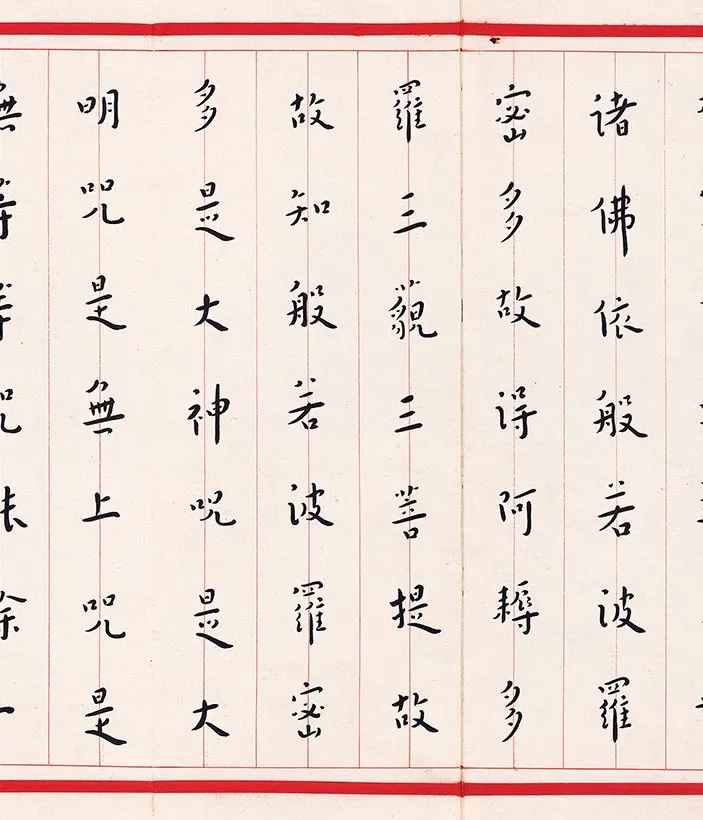 諸佛依般若波羅
密多故得阿耨多
羅三藐三菩提故
故知般若波羅密
多是大神呪是大
明呪是無上呪是
無等等呪能除一